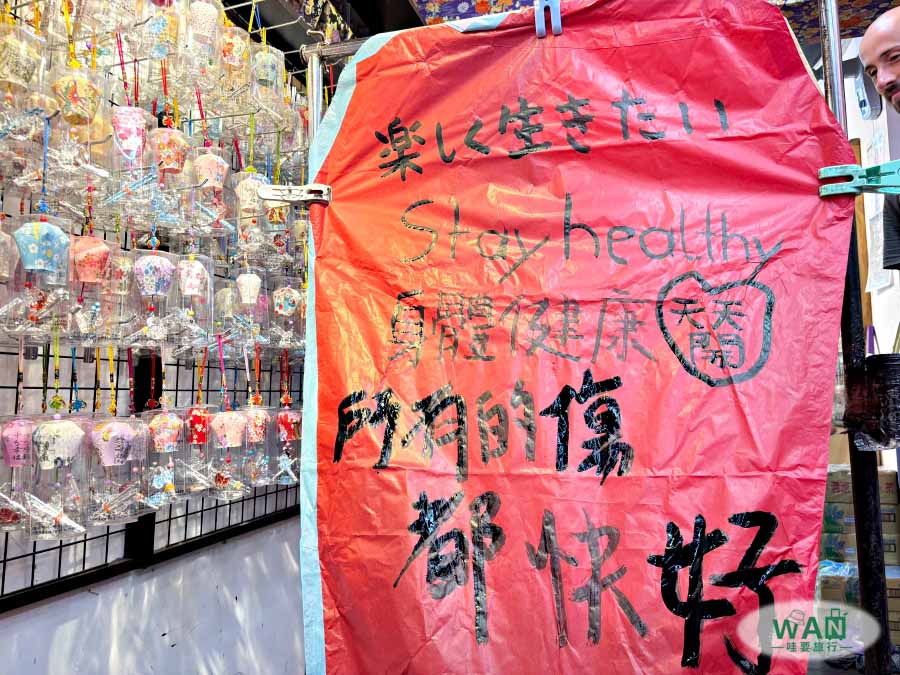 楽しく生きたい
Stay healthy
身體健康
天天開
所有的傷
都快好
WAN
哇要旅行